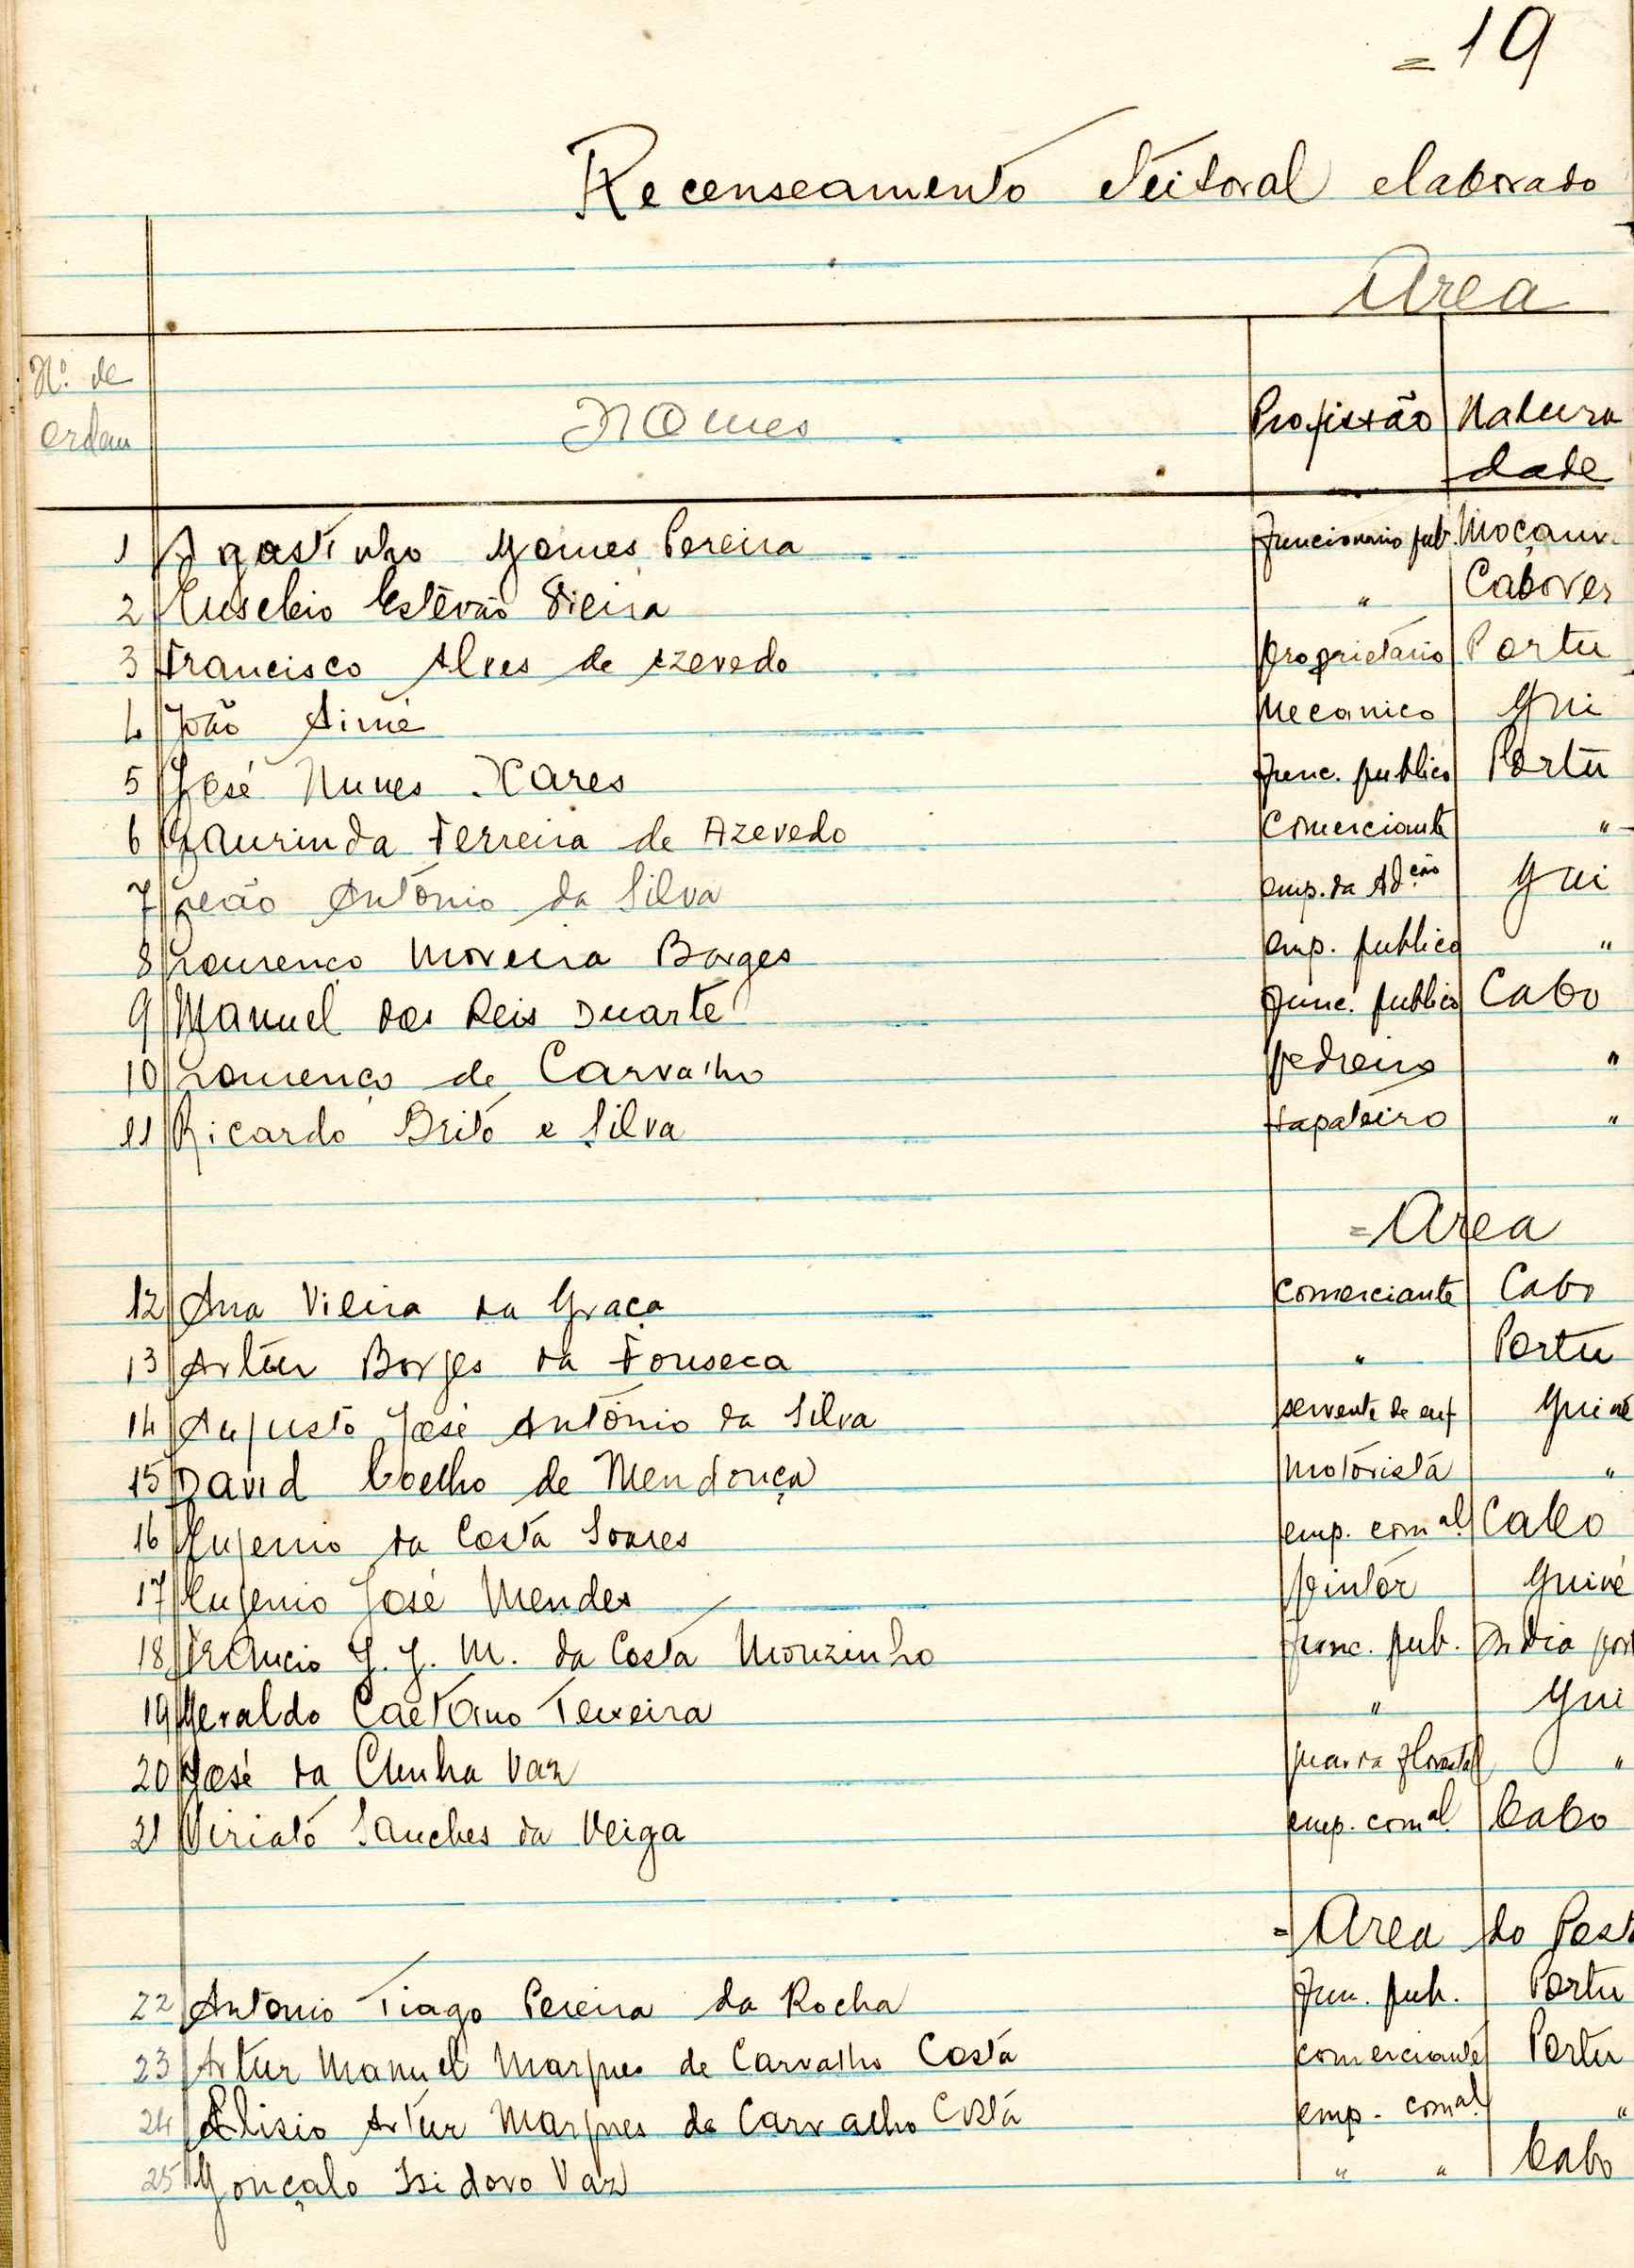 = 19
Recenseamento eleitoral elaborado
Area
Nº de ordem Nomes Profissão Natura
dade
1 Agostinho Gomes Pereira Funcionario pub. Moçam.
2 Eusebio Estêvão Vieira " Cabover
3 Francisco Alves de Azevedo proprietário Portu
4 João Aimé Mecanico Gui
5 José Nunes Xares Func. publico Portu
6 Laurinda Ferreira de Azevedo Comerciante "
7 Leão António da Silva emp. da Adção Gui
8 Lourenço Moreira Borges emp. publico "
9 Manuel dos Reis Duarte Func. publico Cabo
10 Lourenço de Carvalho pedreiro "
11 Ricardo Brito e Silva sapateiro "
= Area
12 Ana Vieira da Graça Comerciante Cabo
13 Artur Borges da Fonseca " Portu
14 Augusto José António da Silva servente de enf Guiné
15 David Coelho de Mendonça Motorista "
16 Eugenio da Costa Soares emp. comal. Cabo
17 Eugenio José Mendes pintor Guiné
18 J. J. M. da Costa Mouzinho func. pub. India port
19 Geraldo Caetano Teixeira " Gui
20 José da Cunha Vaz guarda florestal "
21 Viriato Sanches da Veiga emp. comal. Cabo
= Area do Post
22 Antonio Tiago Pereira da Rocha Fun. pub. Portu
23 Artur Manuel Marques de Carvalho Costa comerciante Portu
24 Elisio Artur Marques de Carvalho Costa emp. comal. "
25 Gonçalo Isidoro Vaz " " Cabo